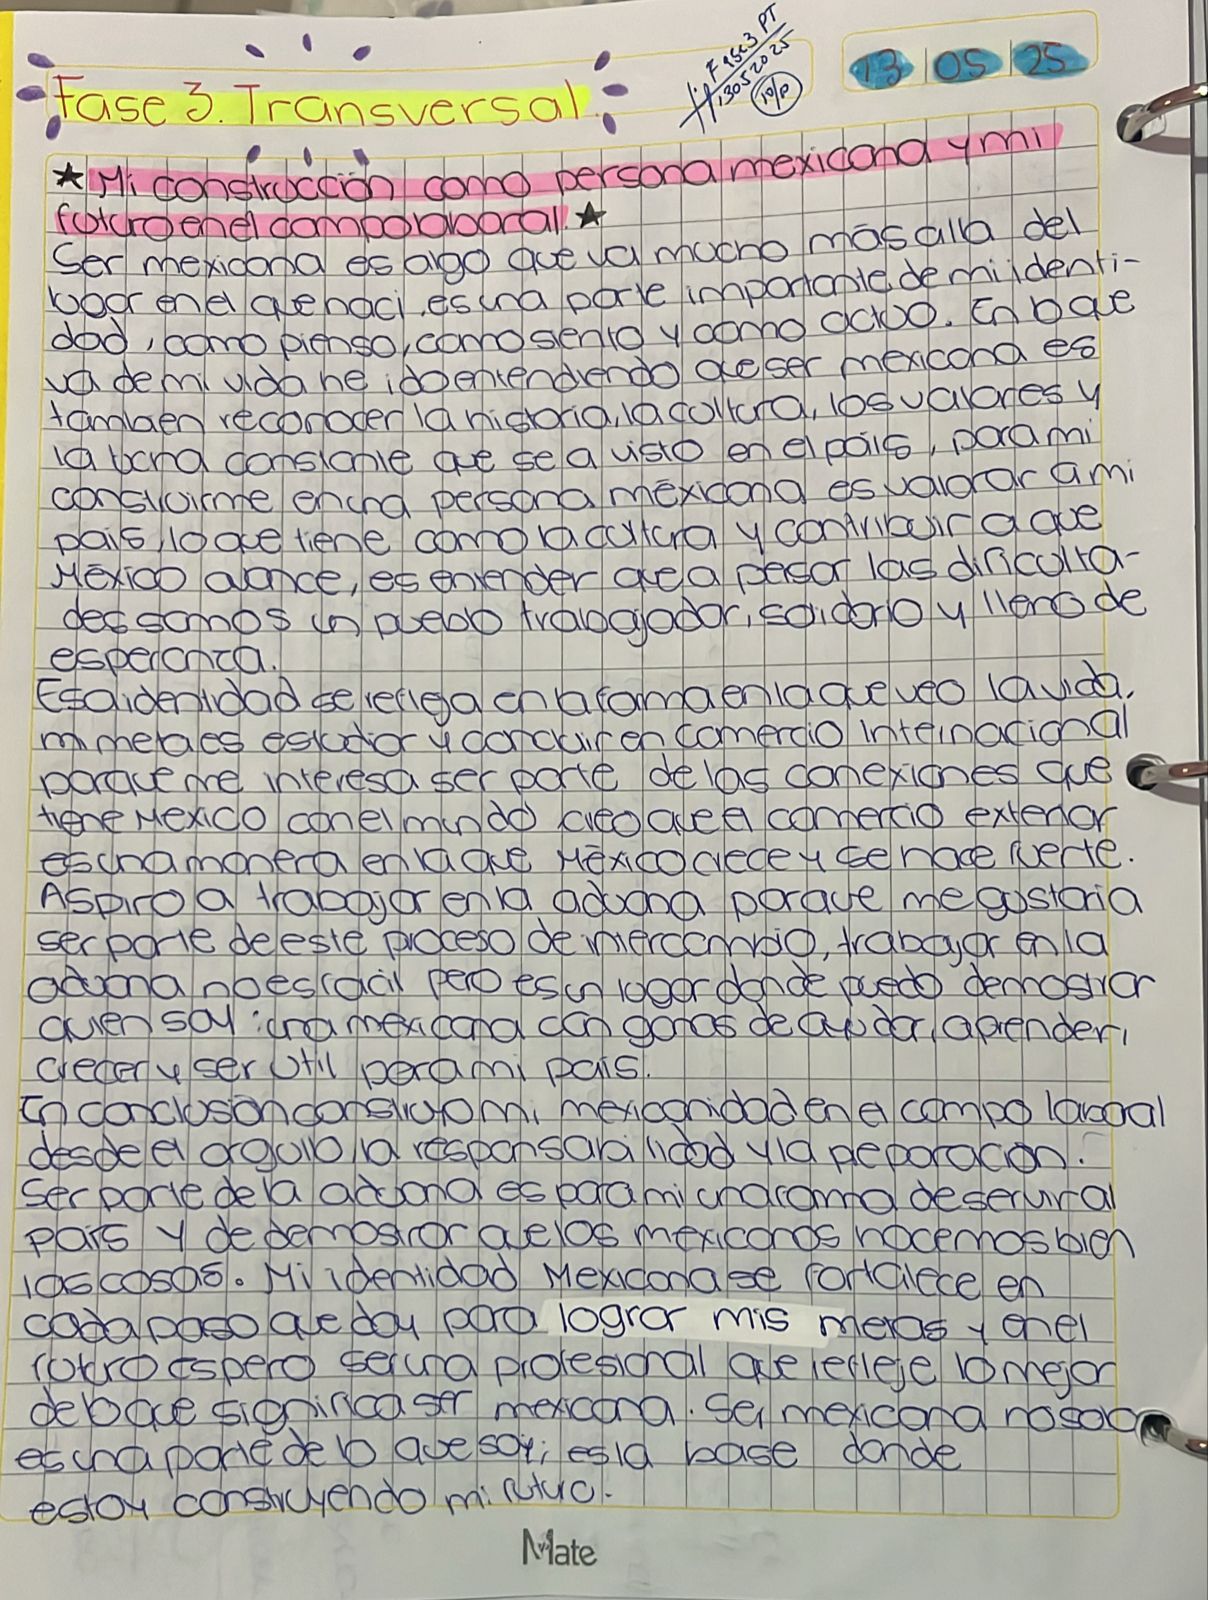 Fase 3 PT
13052025
10/P
13 | 05 | 25
Fase 3. Transversal.
★ Mi construcción como persona mexicana y mi
futuro en el campo laboral. ★
Ser mexicana es algo que va mucho más alla del
lugar en el que naci, es una parte importante de mi identi-
dad, como pienso, como siento y como actuo. En lo que
va de mi vida he ido entendiendo que ser mexicana es
tambien reconocer la historia, la cultura, los valores y
la lucha constante que se a visto en el país, para mi
construirme en una persona mexicana es valorar a mi
país, lo que tiene como la cultura y contribuir a que
México avance, es entender que a pesar las dificulta-
des somos un pueblo trabajador, solidario y lleno de
esperanza.
Esa identidad se refleja en la forma en la que veo la vida,
mi meta es estudiar y concluir en Comercio Internacional
porque me interesa ser parte de las conexiones que
tiene Mexico con el mundo creo que el comercio exterior
es una manera en la que México crece y se hace fuerte.
Aspiro a trabajar en la aduana porque me gustaria
ser parte de este proceso de intercambio, trabajar en la
aduana no es facil pero es un lugar donde puedo demostrar
quien soy: una mexicana con ganas de ayudar, aprender,
crecer y ser util para mi país.
En conclusión construyo mi mexicanidad en el campo laboral
desde el orgullo, la responsabilidad y la preparacion.
Ser parte de la aduana es para mi una forma de servir al
país y de demostrar que los mexicanos hacemos bien
las cosas. Mi identidad Mexicana se fortalece en
cada paso que doy para lograr mis metas y en el
futuro espero ser una profesional que refleje lo mejor
de lo que significa ser mexicana. Ser mexicana no solo
es una parte de lo que soy; es la base donde
estoy construyendo mi futuro.
Mate